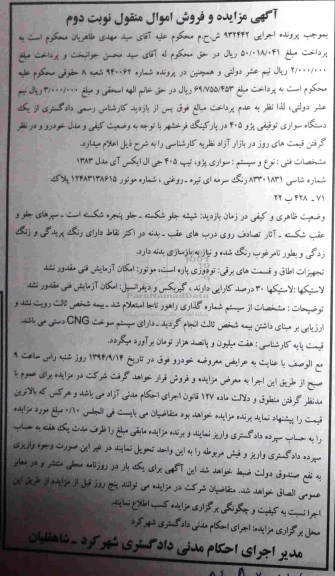 آگهی مزایده و فروش اموال منقول نوبت دوم
بموجب پرونده اجرایی ۹۳۲۴۴۲ ش.ح.م محکوم علیه آقای سید مهدی طاهریان محکوم است به
پرداخت مبلغ ۵۰/۰۱۸/۰۴۱ ریال در حق محکوم له آقای سید محسن جوانبخت و پرداخت مبلغ
۲/۰۰۰/۰۰۰ ریال نیم عشر دولتی و همچنین در پرونده شماره ۹۴۰۰۶۲ شعبه ۸ حقوقی محکوم علیه
محکوم است به پرداخت مبلغ ۶۹/۷۵۵/۴۵۳ ریال در حق خانم الهه اسحقی و مبلغ ۳/۰۰۰/۰۰۰ ریال نیم
عشر دولتی، لذا نظر به عدم پرداخت مبالغ فوق پس از بازدید کارشناس رسمی دادگستری از یک
دستگاه سواری توقیفی پژو ۴۰۵ در پارکینگ فرخشهر با توجه به وضعیت کیفی و مدل خودرو و در نظر
گرفتن قیمت های روز در بازار آزاد نظریه کارشناسی را به شرح ذیل اعلام میدارد.
مشخصات فنی : نوع و سیستم : سواری پژو، تیپ ۴۰۵ جی ال ایکس آی مدل ۱۳۸۳
شماره شاسی ۸۳۳۰۱۸۳۱ رنگ سرمه ای تیره ـ روغنی ، شماره موتور ۱۲۴۸۳۱۳۸۶۱۵ پلاک
۷۱ ـ ۴۲۸ ب ۲۲
وضعیت ظاهری و کیفی در زمان بازدید: شیشه جلو شکسته ـ جلو پنجره شکسته است ـ سپرهای جلو و
عقب شکسته ـ آثار تصادف روی درب های عقب ـ بدنه در اکثر نقاط دارای رنگ پریدگی و زنگ
زدگی و بطور نامرغوب رنگ شده و نیاز به بازسازی بدنه دارد.
تجهیزات اطاق و قسمت های برقی : تودوزی پاره است، موتور: امکان آزمایش فنی مقدور نشد
لاستیکها :لاستیکها ۳۰ درصد کارایی دارند ، گیربکس و دیفرانسیل: امکان آزمایش فنی مقدور نشد
توضیحات : مشخصات از سیستم شماره گذاری راهور ناجا استعلام شد ـ بیمه شخص ثالث رویت نشد و
ارزیابی بر مبنای داشتن بیمه شخص ثالث انجام گردید ـ دارای سیستم سوخت CNG دستی می باشد.
قیمت پایه کارشناسی : هفت میلیون و پانصد هزار تومان برآورد میگردد.
مع الوصف با عنایت به عرایض معروضه خودرو فوق در تاریخ ۱۳۹۴/۹/۱۴ روز شنبه راس ساعت ۹
صبح از طریق این اجرا به معرض مزایده و فروش قرار خواهد گرفت شرکت در مزایده برای عموم با
مدنظر گرفتن منطوق و دلالت ماده ۱۲۷ قانون اجرای احکام مدنی آزاد می باشد و هرکس که بالاترین
قیمت را پیشنهاد نماید برنده مزایده خواهد بود متقاضیان می بایست فی المجلس ۰/۱۰ مبلغ مورد مزایده
را به حساب سپرده دادگستری واریز نمایند و برنده مزایده مابقی مبلغ را ظرف مدت یک هفته به حساب
سپرده دادگستری واریز و فیش مربوطه را به این واحد تحویل نمایند در غیر این صورت وجوه واریزی
به نفع صندوق دولت ضبط خواهد شد این آگهی برای یک بار در روزنامه محلی منتشر و در معابر
عمومی الصاق خواهد شد. متقاضیان شرکت در مزایده می توانند پنج روز قبل از مزایده از طریق این
اجرا نسبت به کیفیت و چگونگی برگزاری مزایده کسب اطلاع نمایند.
محل برگزاری مزایده: اجرای احکام مدنی دادگستری شهرکرد
مدیر اجرای احکام مدنی دادگستری شهرکرد ـ شاهقلیان